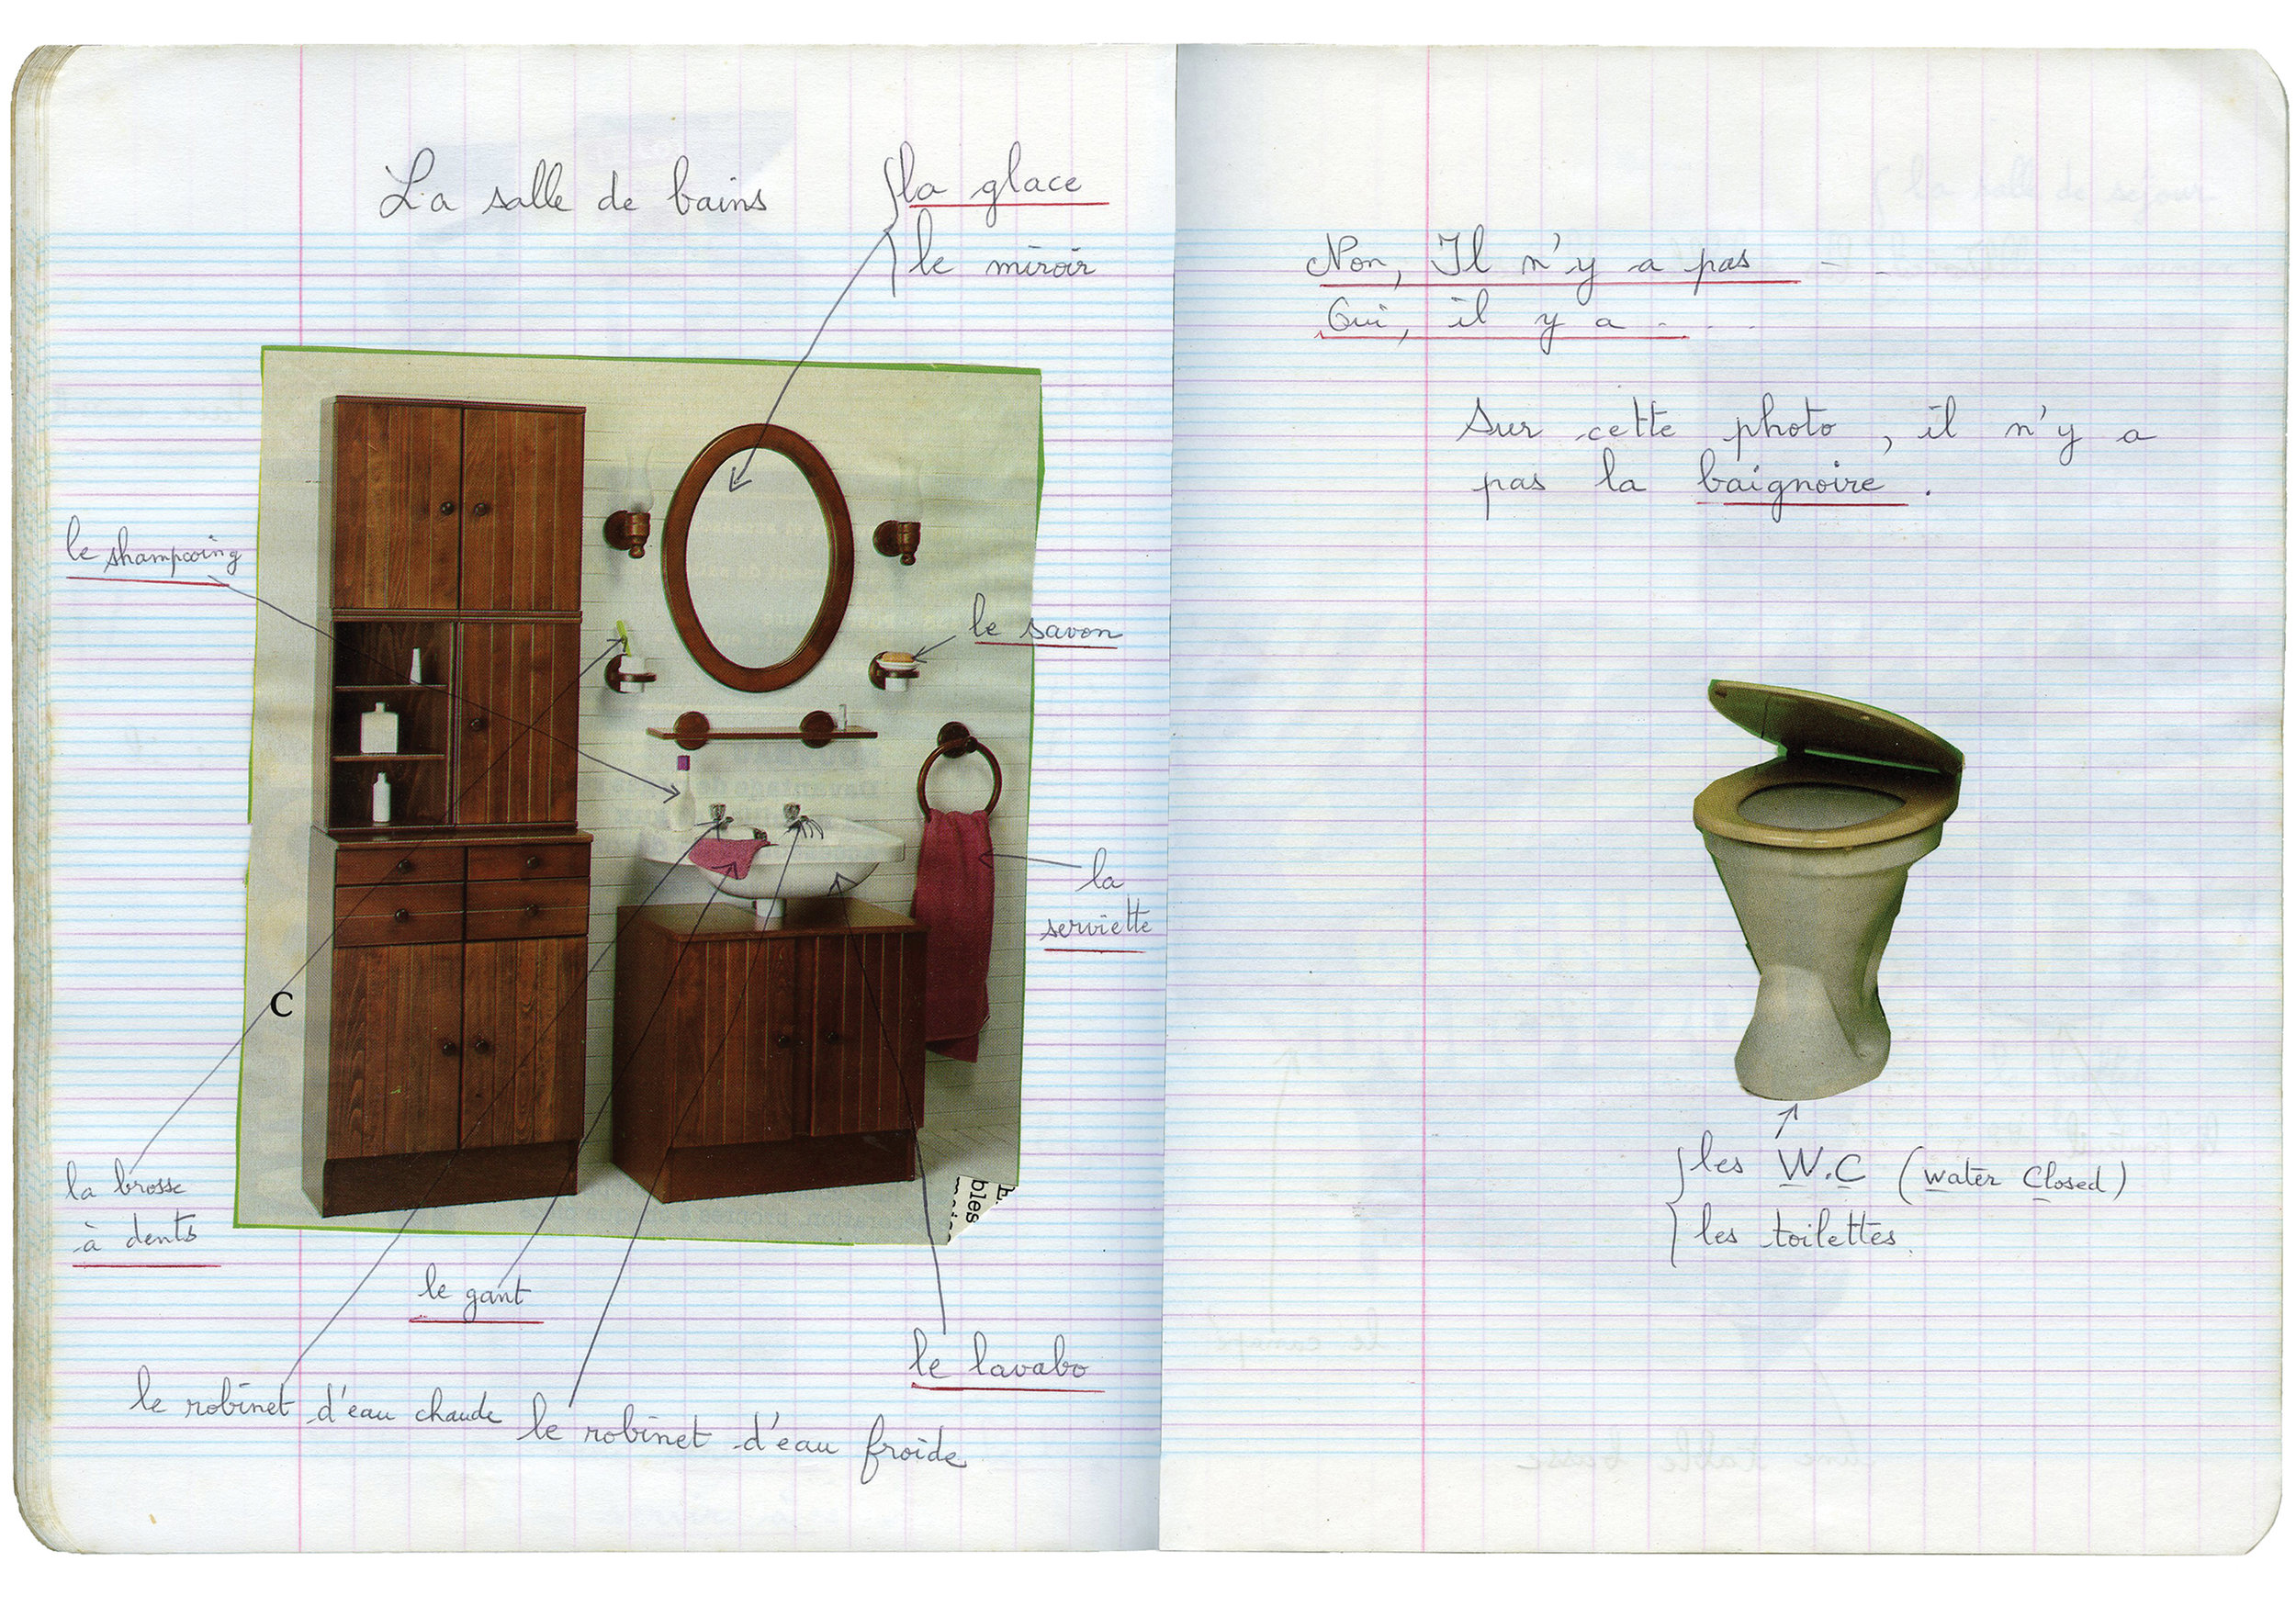 La salle de bains
la glace
le miroir
le shampooing
le savon
la
serviette
C
bles
la brosse
à dents
le gant
le lavabo
le robinet d'eau chaude
le robinet d'eau froide
Non, Il n'y a pas - -
Oui, il y a - - - -
Sur cette photo, il n'y a
pas la baignoire.
les W.C (water Closed)
les toilettes.